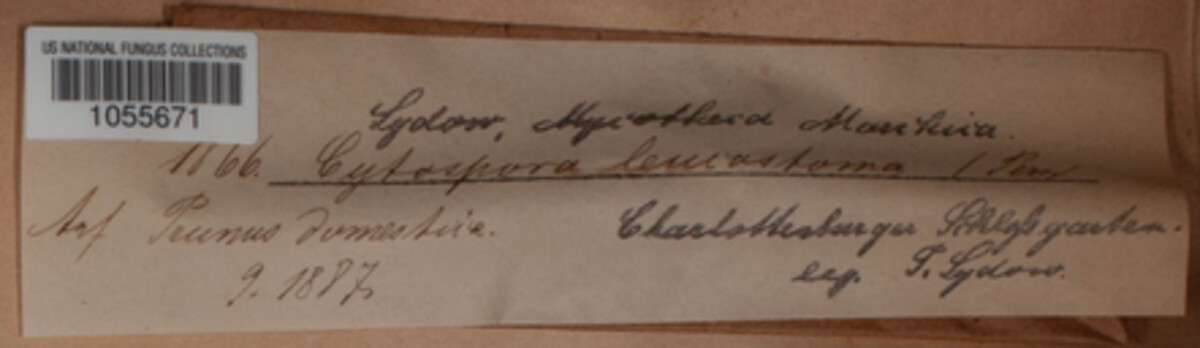 US NATIONAL FUNGUS COLLECTIONS
1055671
Sydow, Mycotheca Marchica.
1866. Cytospora leucostoma (Pers
Auf Prunus domestica. Charlottenburger Schloßgarten.
9. 1887. leg. P. Sydow.